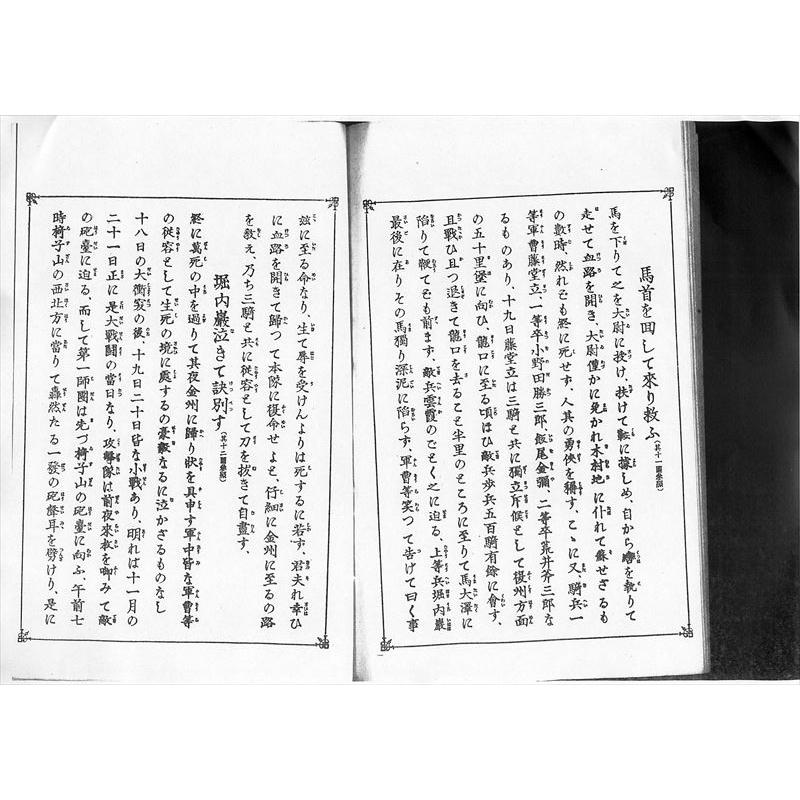 馬首を回して來り救ふ(其十一圖參照)
馬を下りて之を大尉に授け、扶けて鞍に據しめ、自から轡を執りて
走せて血路を開き、大尉僅かに免かれ木村地に仆れて蘇せざるも
の數時 然れども終に死せず、人其の勇俠を稱す、こゝに又、騎兵一
等軍曹藤堂立、一等卒小野田勝三郎、飯尾金彌、二等卒荒井斧三郎な
るものあり、十九日藤堂立は三騎と共に獨立斥候として復州方面
の五十里堡に向ひ、龍口に至る頃ほひ敵兵歩兵五百騎有餘に會す、
且戰ひ且つ退きて龍口を去ること半里のところに至りて馬大澤に
陷りて鞭てども前ます、敵兵雲霞のごとく之に迫る、上等兵堀内巖
最後に在り その馬獨り深泥に陷らす、軍曹等笑つて告げて曰く事
玆に至る命なり、生て辱を受けんよりは死するに若す、君夫れ幸ひ
に血路を開きて歸つて本隊に復命せよと、仔細に金州に至るの路
を敎え、乃ち三騎と共に從容として刀を拔きて自盡す、
堀内巖泣きて訣別す(其十二圖參照)
終に萬死の中を過りて其夜金州に歸り狀を具申す軍中皆な軍曹等
の從容として生死の境に處するの豪毅なるに泣かざるものなし
十八日の大衝突の後、十九日二十日皆な小戰あり、明れば十一月の
二十一日正に是大戰鬪の當日なり、攻擊隊は前夜來枚を啣みて敵
の砲臺に迫る、而して第一師團は先づ椅子山の砲臺に向ふ、午前七
時椅子山の西北方に當りて轟然たる一發の砲聲耳を劈けり、是に